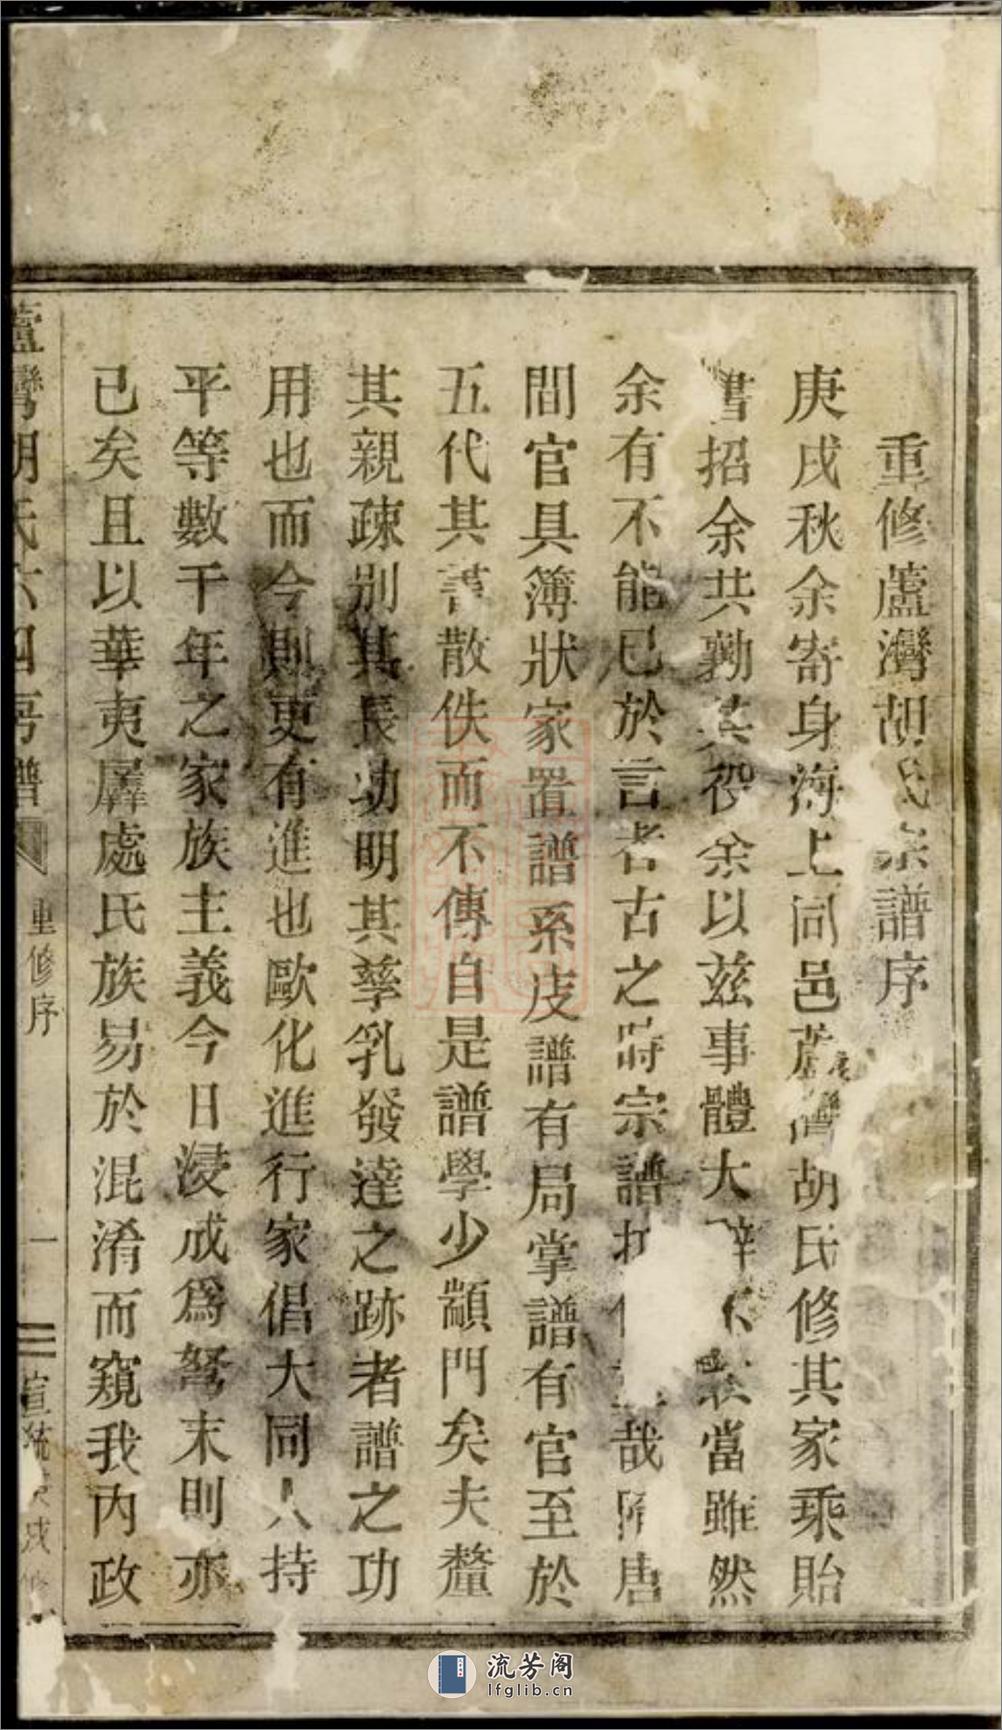 重修蘆灣胡氏宗譜序
庚戌秋余寄身海上同邑蘆灣胡氏修其家乘貽
書招余共勷其役余以茲事體大辭不當雖然
余有不能已於言者古之時宗譜哉隋唐
間官具簿狀家置譜系皮譜有局掌譜有官至於
五代其書散佚而不傳自是譜學少顓門矣夫釐
其親疎別其長幼明其孳乳發達之跡者譜之功
用也而今則更有進也歐化進行家倡大同人持
平等數千年之家族主義今日浸成爲弩末則亦
已矣且以華夷羼處氏族易於混淆而窺我內政
蘆灣胡氏六四房譜
重修序
一
宣統庚戌修
流芳阁
lfglib.cn